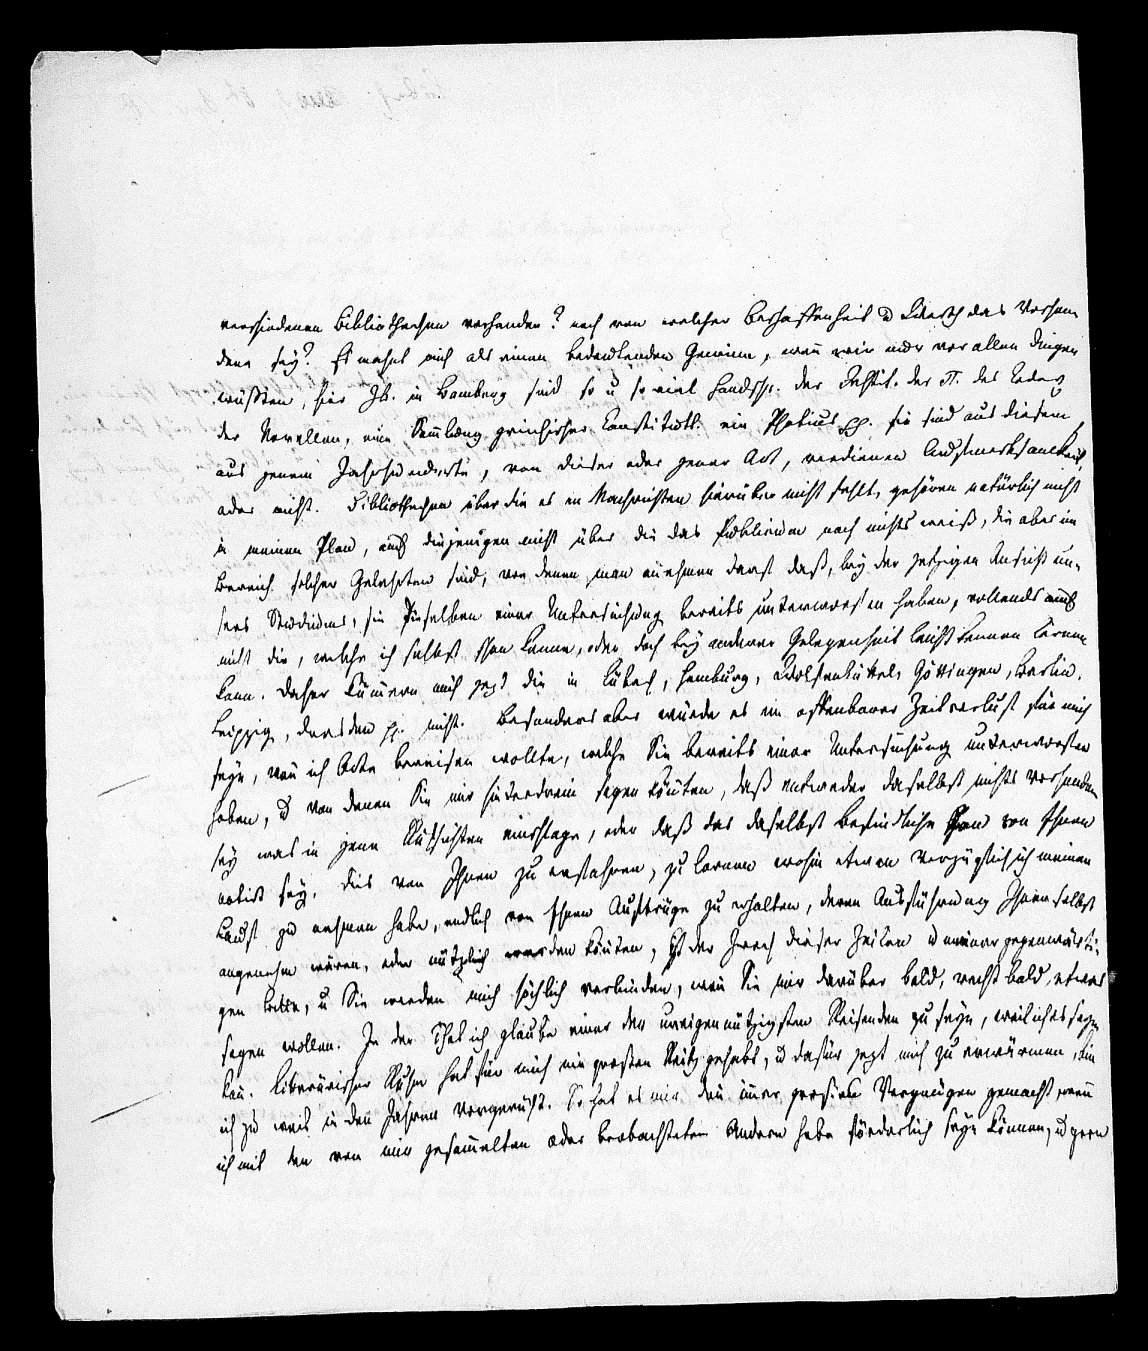 verschiedenen Bibliotheken vorhanden? noch von welcher Beschaffenheit u Werth das Vorhan
dene sey? Es mahnt mich als einen bedeutenden Gewinn, wenn wir nur vor allen Dingen
wüßten, hier z.B. in Bamberg sind so u so viel Handschr. der Instit. der π. des Codex
der Novellen, eine Sammlung griechischer Constitutt. ein Photius pp. sie sind aus diesem,
aus jenem Jahrhunderte, von dieser oder jener Art, verdienen Aufmerksamkeit,
oder nicht. Bibliotheken über die es an Nachrichten hierüber nicht fehlt, gehören natürlich nicht
in meinen Plan, auch diejenigen nicht über die das Publicum noch nichts weiß, die aber im
Bereich solcher Gelehrten sind, von denen man annehmen darf daß, bey der jetzigen Ansicht un-
sers Studiums, sie dieselben einer Untersuchung bereits unterworfen haben, vollends auch
nicht die, welche ich selbst schon kenne, oder doch bey anderer Gelegenheit leicht kennen lernen
kann. Daher kümmern mich jezt die in Lübeck, Hamburg, Wolfenbüttel, Göttingen, Berlin,
Leipzig, Dresden pp. nicht. Besonders aber würde es ein offenbarer Zeitverlust für mich
seyn, wenn ich Orte bereisen wollte, welche Sie bereits einer Untersuchung unterworfen
haben, u von denen Sie mir hinterdrein sagen könnten, daß entweder daselbst nichts vorhanden
sey was in jene Rücksichten einschlage, oder daß das daselbst Befindliche schon von Ihnen
notirt sey. Dies von Ihnen zu erfahren, zu lernen wohin etwa vorzüglich ich meinen
Lauf zu nehmen habe, endlich von Ihnen Aufträge zu erhalten, deren Ausführung Ihnen selbst
angenehm wären, oder nützlich werden könnten, ist der Zweck dieser Zeilen u meiner gegenwärti-
gen Bitte, u Sie werden mich höchlich verbinden, wenn Sie mir darüber bald, recht bald, etwas
sagen wollen. In der That ich glaube einer der uneigennützigsten Reisenden zu seyn, weil ich es seyn
kan. Literärischer Ruhm hat für mich nie großen Reitz gehabt, u dafür jezt mich zu erwärmen, bin
ich zu weit in den Jahren vorgerückt. So hat es mir denn immer größeres Vergnügen gemacht, wenn
ich mit den von mir gesammelten oder beobachteten Andern habe förderlich seyn können, u gern